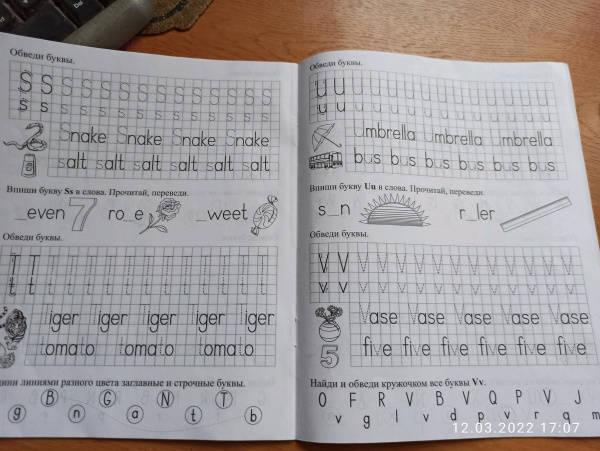 Обведи буквы.
S S S S S S S S S S S S S S S S
s s s s s s s s s s s s s s s s
Snake Snake Snake Snake
salt salt salt salt salt salt
Впиши букву Ss в слова. Прочитай, переведи.
_even 7 ro_e _weet
Обведи буквы.
T T T T T T T T T T T T T T T
t t t t t t t t t t t t t t t
Tiger Tiger Tiger Tiger Tiger
tomato tomato tomato
линиями разного цвета заглавные и строчные буквы.
B G N T
g n a t b
Обведи буквы.
U U U U U U U U U U U U U U
u u u u u u u u u u u u u u
Umbrella Umbrella Umbrella
bus bus bus bus bus bus bus
Впиши букву Uu в слова. Прочитай, переведи.
s_n r_ler
Обведи буквы.
V V V V V V V V V V V V V V
v v v v v v v v v v v v v v
Vase Vase Vase Vase Vase
5 five five five five five five
Найди и обведи кружочком все буквы Vv.
O F R V B V Q P V J
v g l v d p v r q m
12.03.2022 17:07